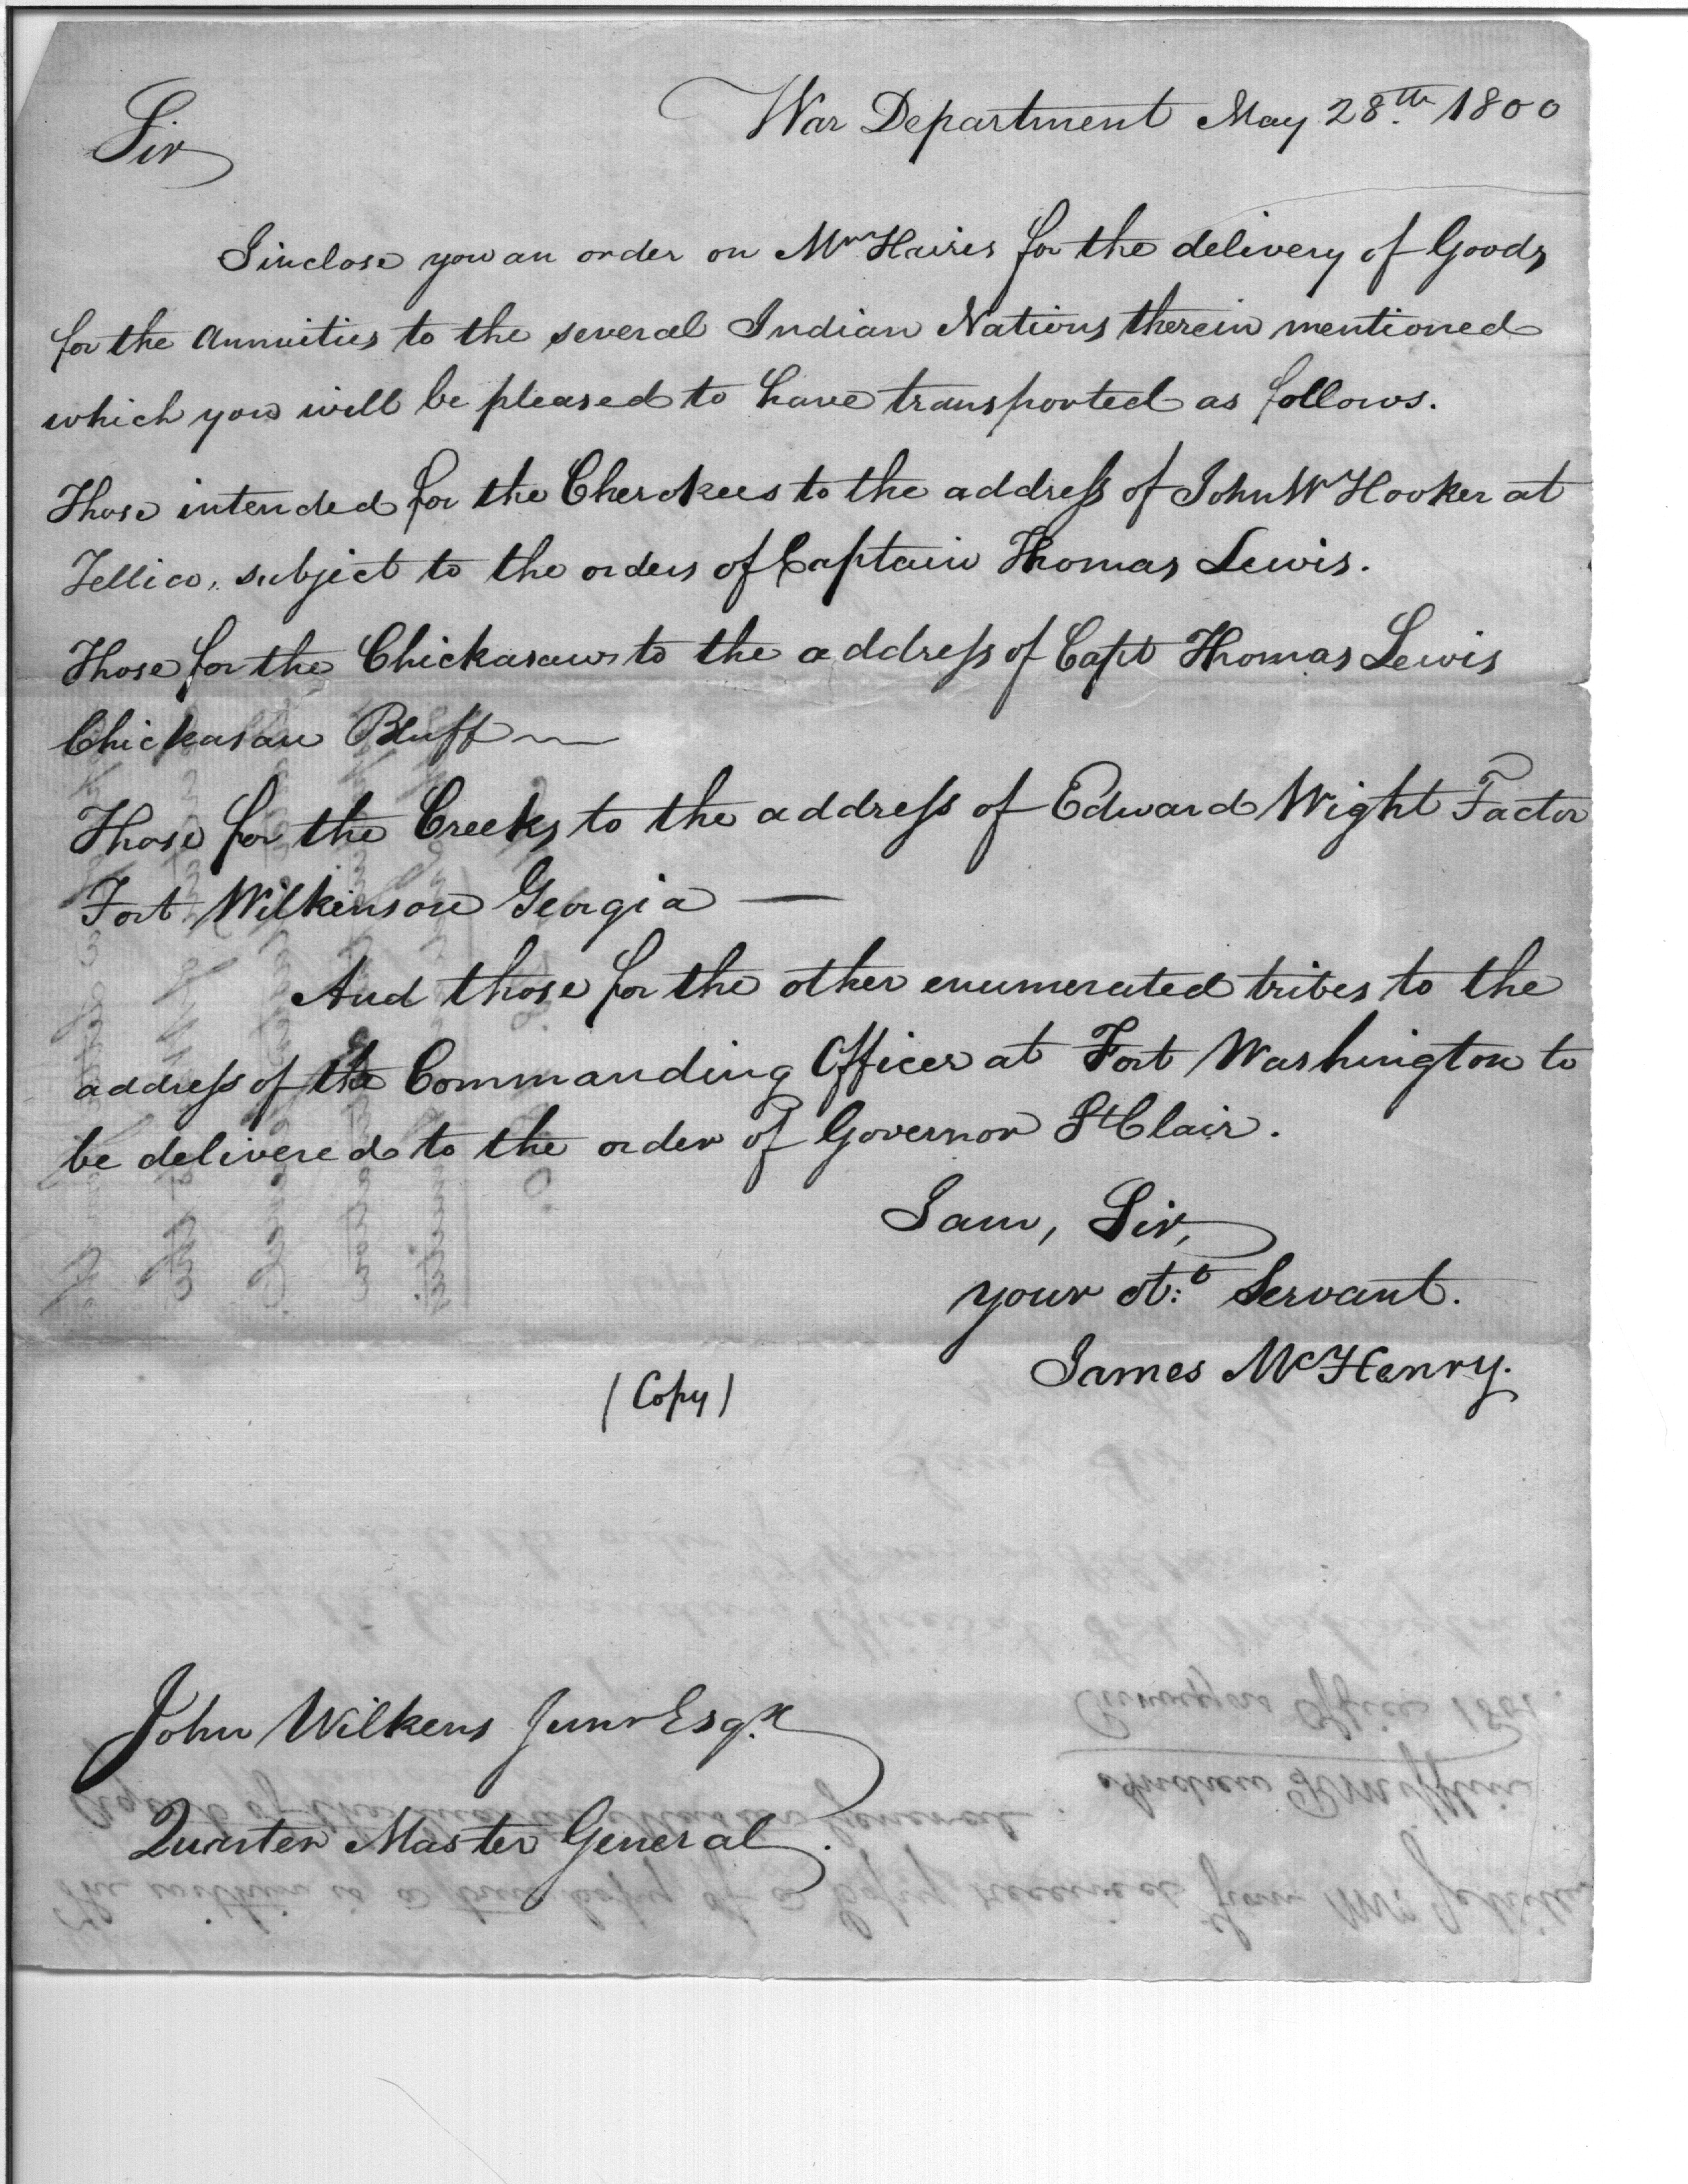 War Department May 28th 1800
Sir
I inclose you an order on Mr Harris for the delivery of Goods
for the annuities to the several Indian Nations therein mentioned
which you will be pleased to have transported as follows.
Those intended for the Cherokees to the address of John W Hooker at
Tellico, subject to the orders of Captain Thomas Lewis.
Those for the Chickasaws to the address of Capt Thomas Lewis
Chickasaw Bluff
Those for the Creeks to the address of Edward Wight Factor
Fort Wilkinson Georgia —
And those for the other enumerated tribes to the
address of the Commanding Officer at Fort Washington to
be delivered to the order of Governor St Clair.
I am, Sir,
your obt: Servant.
James McHenry.
(Copy)
John Wilkens Junr Esqr.
Quarter Master General.